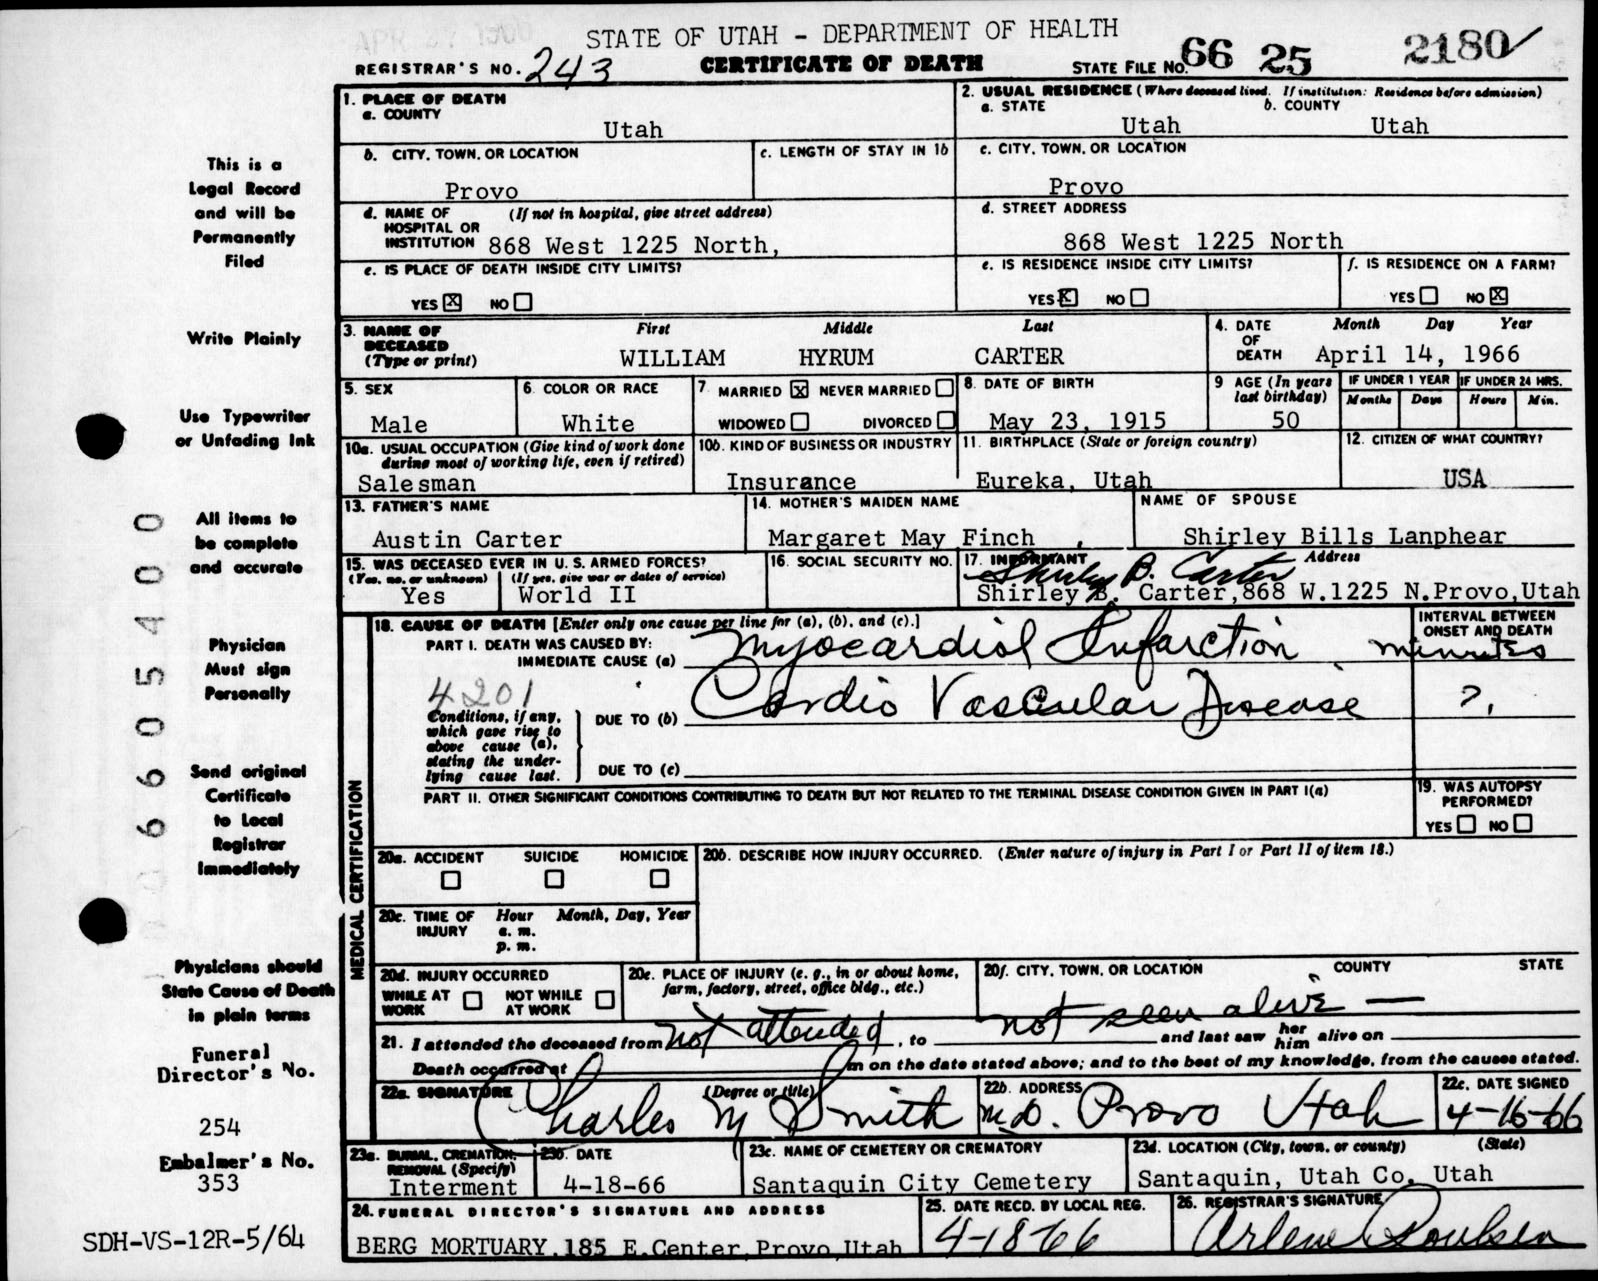 STATE OF UTAH - DEPARTMENT OF HEALTH
REGISTRAR'S NO. 243 CERTIFICATE OF DEATH STATE FILE NO. 66 25 2180
1. PLACE OF DEATH
a. COUNTY
Utah
2. USUAL RESIDENCE (Where deceased lived. If institution: Residence before admission)
a. STATE b. COUNTY
Utah Utah
b. CITY, TOWN, OR LOCATION c. LENGTH OF STAY IN 1b
Provo
c. CITY, TOWN, OR LOCATION
Provo
d. NAME OF HOSPITAL OR INSTITUTION (If not in hospital, give street address)
868 West 1225 North,
d. STREET ADDRESS
868 West 1225 North
e. IS PLACE OF DEATH INSIDE CITY LIMITS?
YES X NO
e. IS RESIDENCE INSIDE CITY LIMITS?
YES X NO
f. IS RESIDENCE ON A FARM?
YES NO X
3. NAME OF DECEASED (Type or print)
First Middle Last
WILLIAM HYRUM CARTER
4. DATE OF DEATH
Month Day Year
April 14, 1966
5. SEX
Male
6. COLOR OR RACE
White
7. MARRIED X NEVER MARRIED
WIDOWED DIVORCED
8. DATE OF BIRTH
May 23, 1915
9 AGE (In years last birthday)
50
IF UNDER 1 YEAR IF UNDER 24 HRS.
Months Days Hours Min.
10a. USUAL OCCUPATION (Give kind of work done during most of working life, even if retired)
Salesman
10b. KIND OF BUSINESS OR INDUSTRY
Insurance
11. BIRTHPLACE (State or foreign country)
Eureka, Utah
12. CITIZEN OF WHAT COUNTRY?
USA
13. FATHER'S NAME
Austin Carter
14. MOTHER'S MAIDEN NAME
Margaret May Finch
NAME OF SPOUSE
Shirley Bills Lanphear
15. WAS DECEASED EVER IN U.S. ARMED FORCES?
(Yes, no, or unknown) (If yes, give war or dates of service)
Yes World II
16. SOCIAL SECURITY NO.
17. INFORMANT Address
Shirley B. Carter
Shirley B. Carter,868 W.1225 N.Provo,Utah
18. CAUSE OF DEATH [Enter only one cause per line for (a), (b), and (c).]
INTERVAL BETWEEN ONSET AND DEATH
PART I. DEATH WAS CAUSED BY:
IMMEDIATE CAUSE (a) Myocardial Infarction minutes
4201
Conditions, if any, which gave rise to above cause (a), stating the underlying cause last.
DUE TO (b) Cardio Vascular Disease ?
DUE TO (c)
PART II. OTHER SIGNIFICANT CONDITIONS CONTRIBUTING TO DEATH BUT NOT RELATED TO THE TERMINAL DISEASE CONDITION GIVEN IN PART I(a)
19. WAS AUTOPSY PERFORMED?
YES NO
MEDICAL CERTIFICATION
20a. ACCIDENT SUICIDE HOMICIDE
20b. DESCRIBE HOW INJURY OCCURRED. (Enter nature of injury in Part I or Part II of item 18.)
20c. TIME OF INJURY Hour Month, Day, Year
a. m.
p. m.
20d. INJURY OCCURRED
WHILE AT WORK NOT WHILE AT WORK
20e. PLACE OF INJURY (e. g., in or about home, farm, factory, street, office bldg., etc.)
20f. CITY, TOWN, OR LOCATION COUNTY STATE
21. I attended the deceased from not attended, to not seen alive and last saw her him alive on
Death occurred at m on the date stated above; and to the best of my knowledge, from the causes stated.
22a. SIGNATURE (Degree or title)
Charles M Smith M.D.
22b. ADDRESS
Provo Utah
22c. DATE SIGNED
4-16-66
23a. BURIAL, CREMATION, REMOVAL (Specify)
Interment
23b. DATE
4-18-66
23c. NAME OF CEMETERY OR CREMATORY
Santaquin City Cemetery
23d. LOCATION (City, town, or county) (State)
Santaquin, Utah Co. Utah
24. FUNERAL DIRECTOR'S SIGNATURE AND ADDRESS
BERG MORTUARY 185 E.Center,Provo,Utah
25. DATE RECD. BY LOCAL REG.
4-18-66
26. REGISTRAR'S SIGNATURE
Arlene Poulsen
This is a
Legal Record
and will be
Permanently
Filed
Write Plainly
Use Typewriter
or Unfading Ink
All items to
be complete
and accurate
Physician
Must sign
Personally
Send original
Certificate
to Local
Registrar
Immediately
Physicians should
State Cause of Death
in plain terms
Funeral
Director's No.
254
Embalmer's No.
353
SDH-VS-12R-5/64